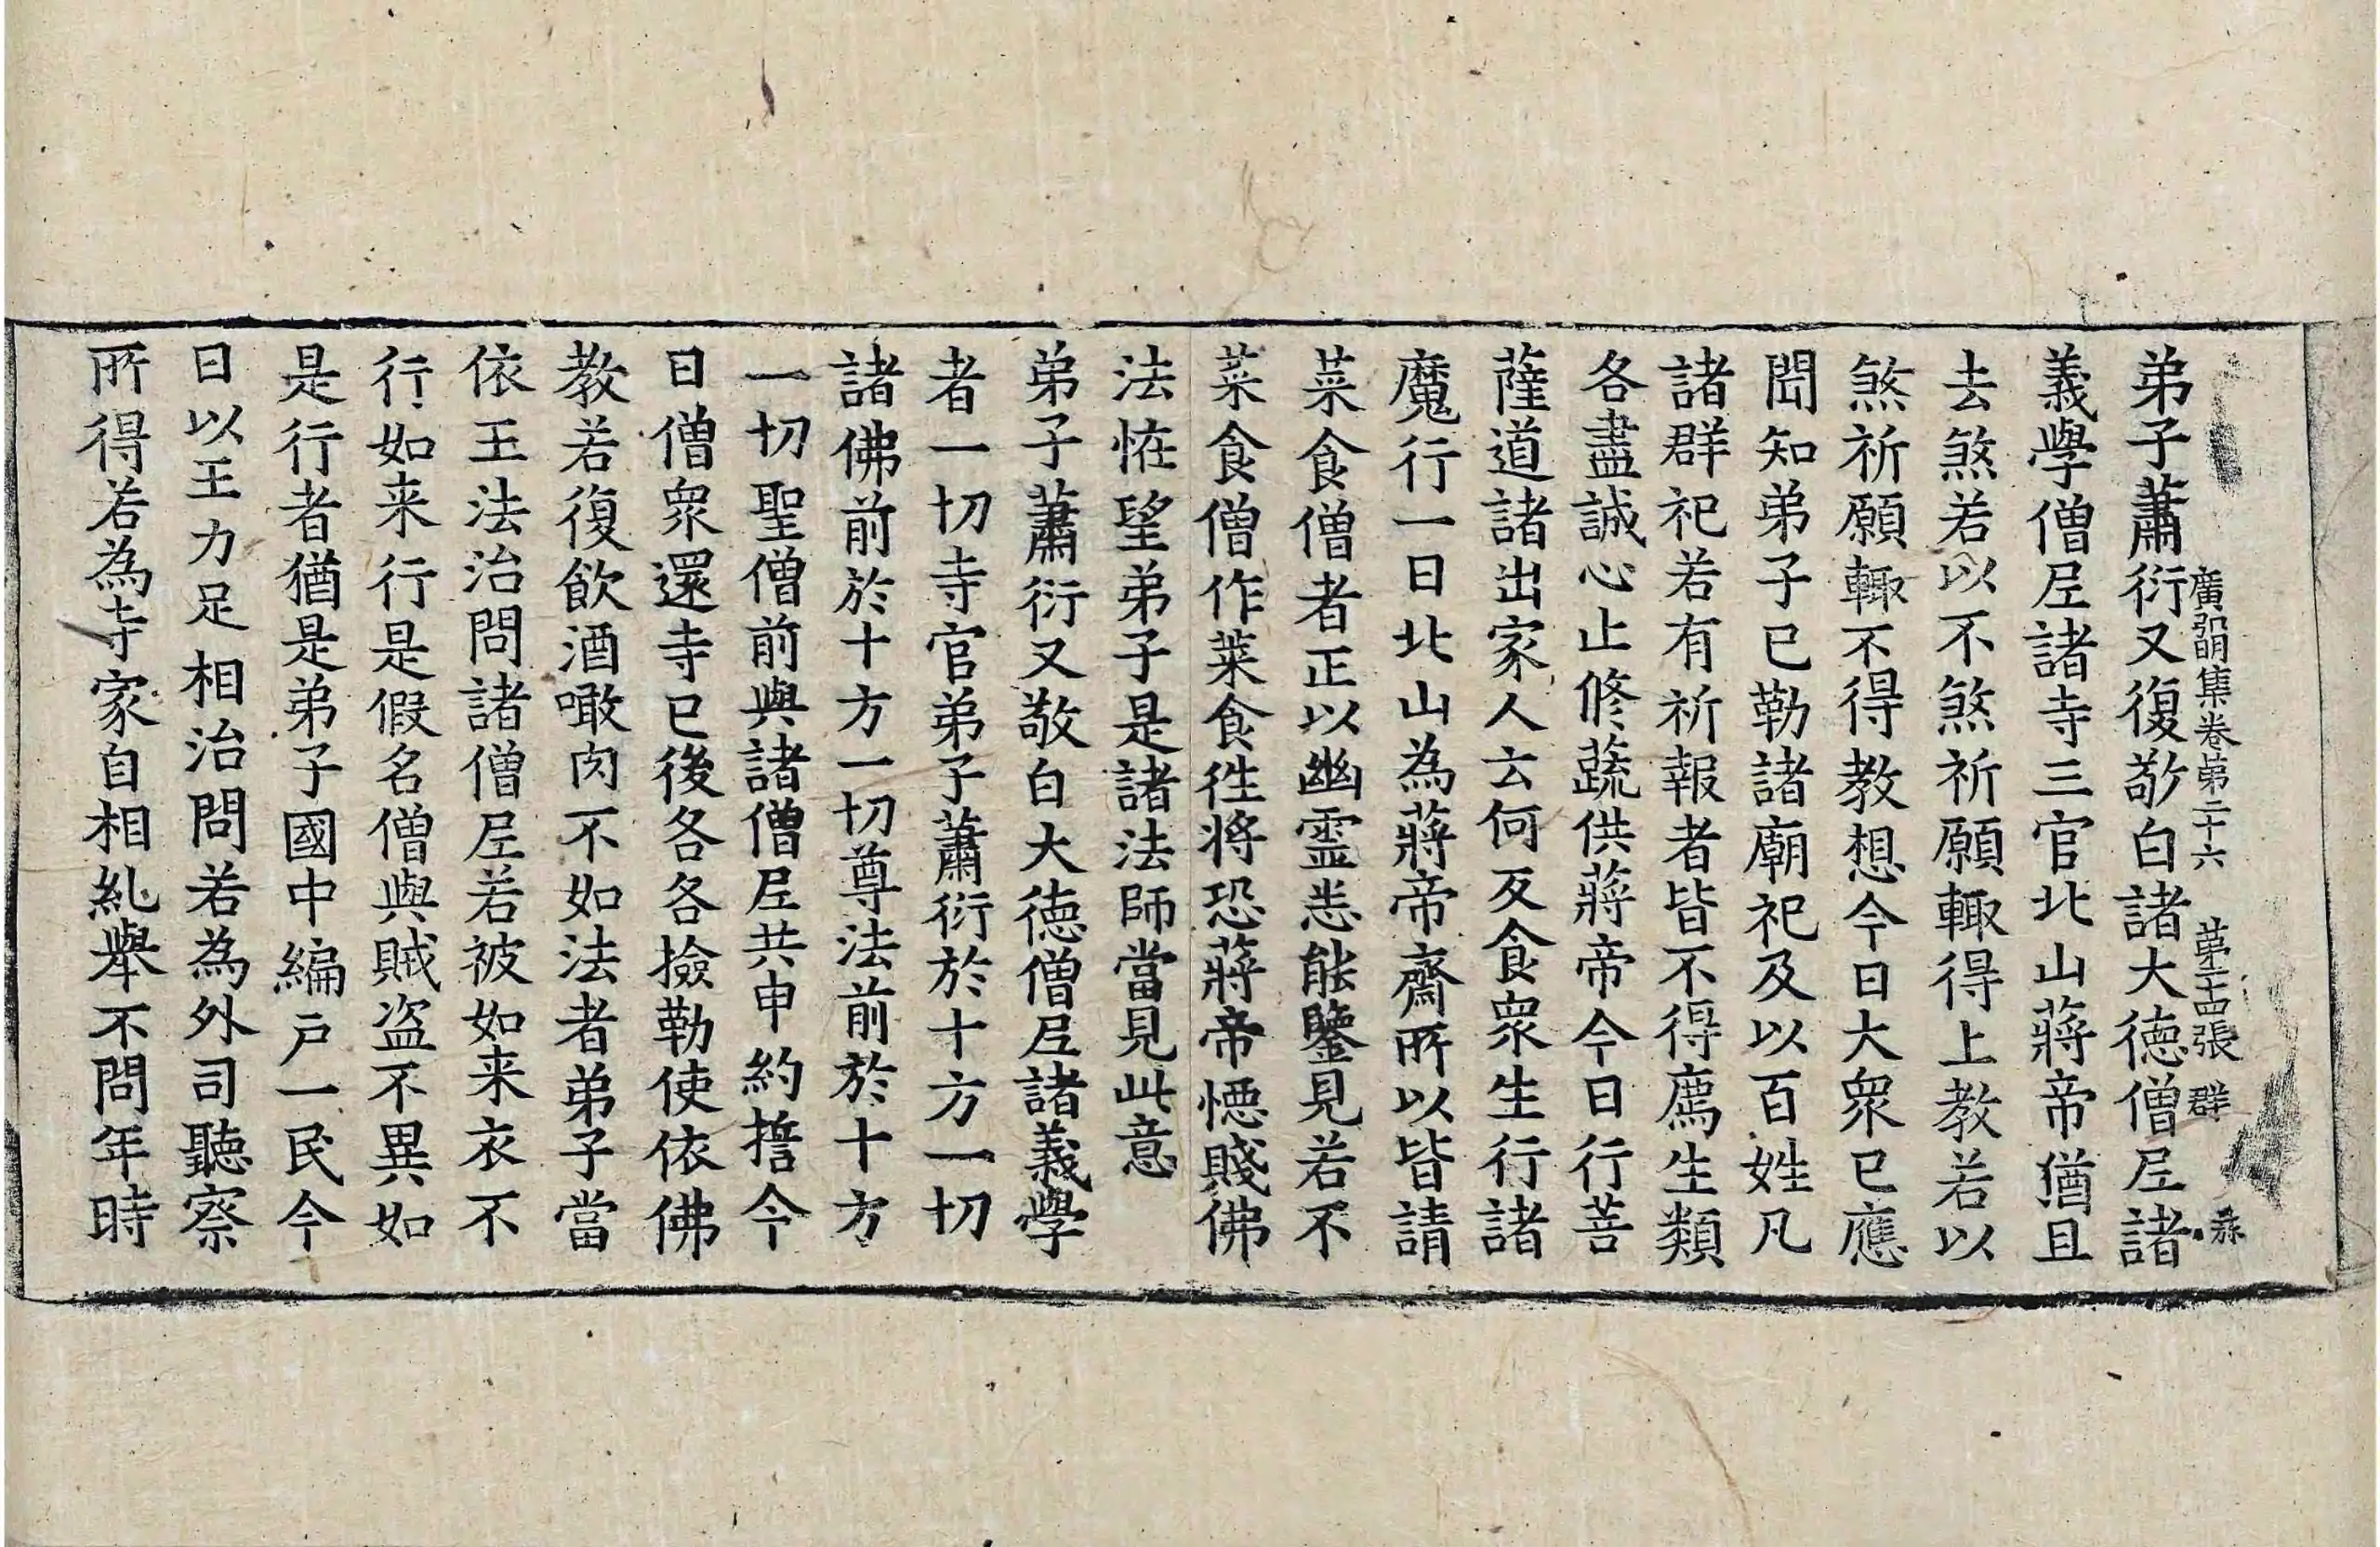 廣弘明集卷第二十六 第二十四張 群
弟子蕭衍又復敬白諸大德僧尼諸
義學僧尼諸寺三官北山蔣帝猶且
去煞若以不煞祈願輙得上教若以
煞祈願輙不得教想今日大眾已應
聞知弟子已勒諸廟祀及以百姓凡
諸群祀若有祈報者皆不得廌生類
各盡誠心止修蔬供蔣帝今日行菩
薩道諸出家人云何反食眾生行諸
魔行一日北山為蔣帝齋所以皆請
菜食僧者正以幽靈悉能鑒見若不
菜食僧作菜食徃將恐蔣帝惡賤佛
法恠望弟子是諸法師當見此意
弟子蕭衍又敬白大德僧尼諸義學
者一切寺官弟子蕭衍於十方一切
諸佛前於十方一切尊法前於十方
一切聖僧前與諸僧尼共申約擔今
日僧眾還寺已後各各撿勒使依佛
教若復飲酒噉肉不如法者弟子當
依王法治問諸僧尼若被如来衣不
行如来行是假名僧與賊盗不異如
是行者猶是弟子國中編戶一民今
日以王力足相治問若為外司聽察
所得若為寺家自相糺舉不問年時